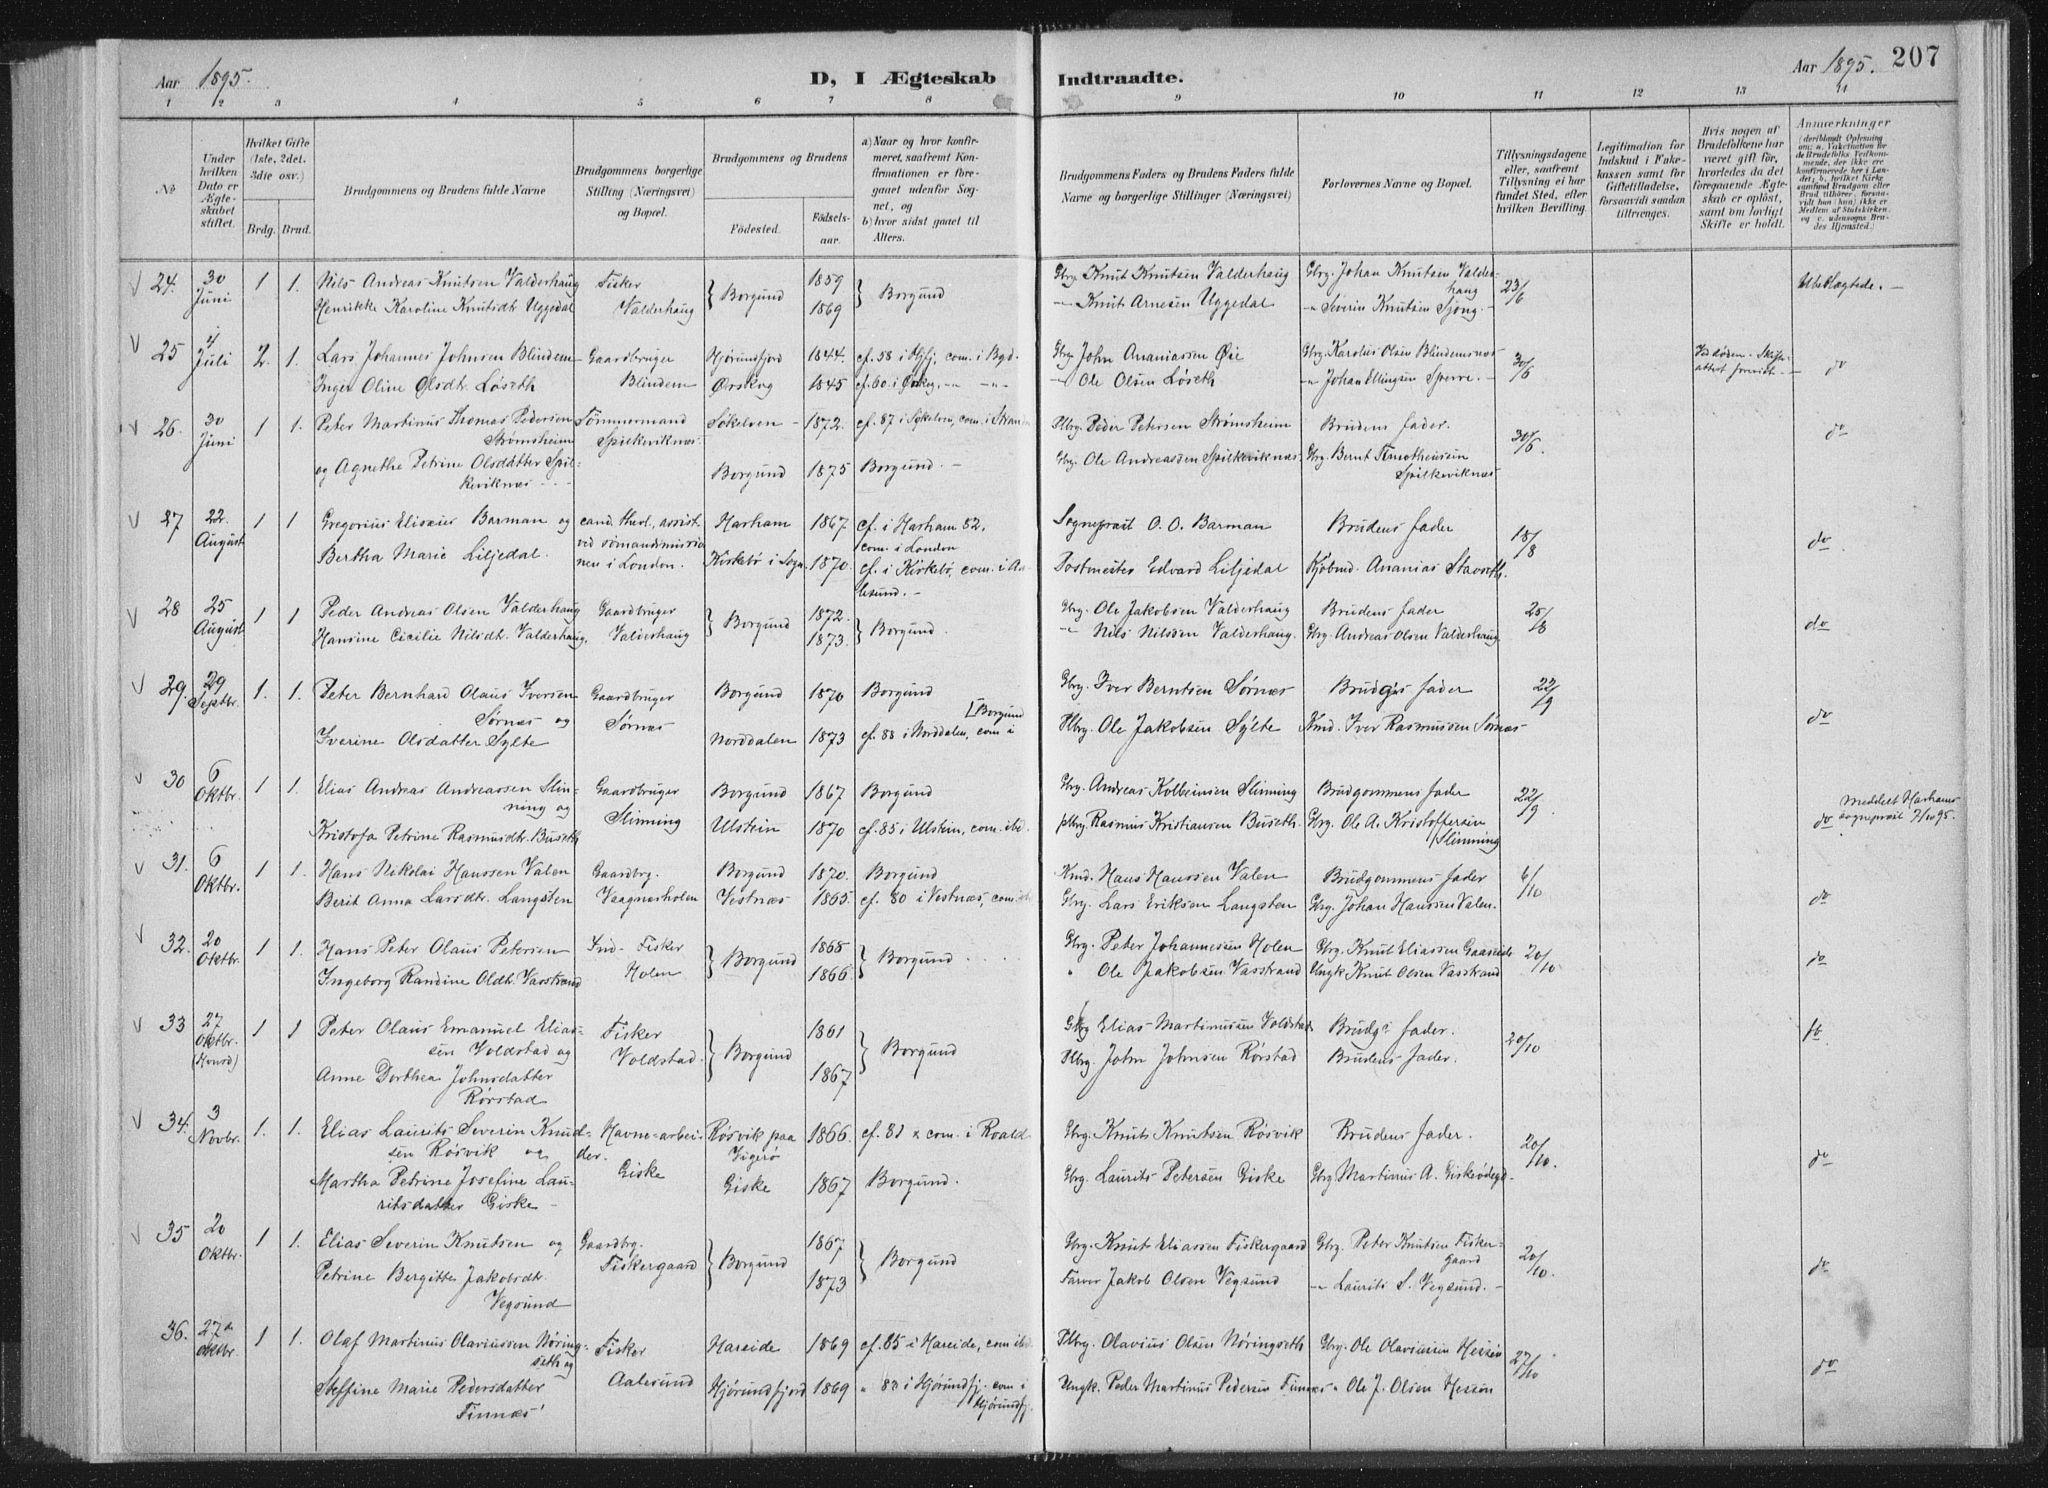 Aar 1895.
D, I Ægteskab Indtraadte.
Aar 1895. 207
1 2 3 4 5 6 7 8 9 10 11 12 13 14
No
Under hvilken Dato er Ægteskabet stiftet.
Hvilket Gifte (1ste, 2det. 3die osv.)
Brdg. Brud.
Brudgommens og Brudens fulde Navne
Brudgommens borgerlige Stilling (Næringsvei) og Bopæl.
Brudgommens og Brudens
Födested.
Födselsaar.
a) Naar og hvor konfirmeret, saafremt Konfirmationen er foregaaet udenfor Sognet, og
b) hvor sidst gaaet til Alters.
Brudgommens Faders og Brudens Faders fulde Navne og borgerlige Stillinger (Næringsvei)
Forlovernes Navne og Bopæl.
Tillysningsdagene eller, saafremt Tillysning ei har fundet Sted, efter hvilken Bevilling.
Legitimation for Indskud i Enkekassen samt for Giftetilladelse, forsaavidt saadan tiltrænges.
Hvis nogen af Brudefolkene har været gift før, hvorledes da det foregaaende Ægteskab er oplöst, samt om lovligt Skifte er holdt.
Anmærkninger
24. 30 Juni 1 1. Nils Andreas Knutsen Valderhaug Fisker Valderhaug Borgund 1859 Borgund Gbrg. Knut Knutsen Valderhaug Gbrg. Johan Knutsen Valderhaug 23/6 Ubeslægtede. -
Henrikke Karoline Knutsdt. Uggedal 1869 -"- Knut Arnesen Uggedal -"- Severin Knutsen Sjong. -
25 4 Juli 2. 1. Lars Johannes Johnsen Blindem Gaardbruger Blindem Hjørundfjord 1844. cf. 58 i Hjfj, com. i Bgd. Gbrg. John Ananiassen Øie Gbrg. Karolus Olsen Blindemsnes 30/6 Ved døden. Skifteattest forevist. - do
Inger Oline Olsdtr. Løseth Ørskog 1845 cf. 60. i Ørskog, -"- -"- -"- Ole Olsen Løseth -"- Johan Ellingsen Sperre. -
26. 30 Juni 1 1. Peter Martinus Thomas Pedersen Strømsheim Tömmermand Spilkeviknes. Søkelven - 1872. cf. 87 i Søkelven, com. i Stranden Plbrg. Peder Petersen Strømsheim Brudens fader. 30/6. do
og Agnethe Petrine Olsdatter Spilkeviknæs - Borgund 1875 Borgund. - Gbrg. Ole Andreassen Spilkeviknæs. Gbrg. Bernt Timotheussen Spilkeviknæs
27 22. August 1 1 Gregorius Elisæus Barman og cand. theol., assist. ved sømandsmissionen i London. Harham 1867 cf. i Harham 82. com. i London Sogneprest O. O. Barman Brudens fader 18/8 do
Bertha Marie Liljedal. Kirkebö i Sogn 1870. cf. i Kirkebö, com. i Aalesund. - Postmester Edvard Liljedal Kjöbmd. Ananias Stavseth.
28 25 August 1 1 Peder Andreas Olsen Valderhaug Gaardbruger Valderhaug Borgund 1872. Borgund. Gbrg. Ole Jakobsen Valderhaug Brudens fader 25/8 do
Hansine Cicilie Nilsdt. Valderhaug. 1873. -"- Nils Nilsen Valderhaug. Gbrg. Andreas Olsen Valderhaug
29. 29 Septbr. 1. 1. Peter Bernhard Olaus Iversen Sørnæs og Gaardbruger Sørnæs Borgund 1870 Borgund Gbrg. Iver Berntsen Sørnæs Brudg's fader 22/9 do
Iverine Olsdatter Sylte Norddalen 1873 cf. 88 i Norddalen, com i Borgund Plbrg. Ole Jakobsen Sylte Kmd. Iver Rasmussen Sørnæs
30 6 Oktbr. 1 1. Elias Andreas Andreassen Slinning og Gaardbruger Slinning Borgund 1867 Borgund Gbrg. Andreas Kolbeinsen Slinning Brudgommens fader 22/9 do Meddelt Harhams sogneprest 7/10 95.
Kristofa Petrine Rasmusdt. Buseth Ulstein 1870 cf. 85 i Ulstein, com. ibd. Plbrg. Rasmus Kristiansen Buseth. Gbrg. Ole A. Kristoffersen Slinning
31. 6 Oktbr. 1 1. Hans Nikolai Hanssen Valen Gaardbrg. Vaagnesholen Borgund 1870. Borgund Kmd. Hans Hanssen Valen Brudgommens fader 6/10 do
Berit Anna Larsdtr. Langsten Vestnæs 1865. cf. 80 i Vestnæs, com. ibd. Gbrg. Lars Eriksen Langsten Gbrg. Johan Hanssen Valen.
32. 20 Oktbr. 1 1. Hans Peter Olaus Petersen Ind- Fisker Holen Borgund 1868 Borgund Gbrg. Peter Johannessen Holen Gbrg. Knut Eliassen Gaaseide 20/10. do
Ingeborg Randine Oldt. Vasstrand 1866. " Ole Jakobsen Vasstrand Ungk. Knut Olsen Vasstrand
33 27 Oktbr. 1 1 Peter Olaus Emanuel Eliassen Voldstad og Fisker Voldstad. Borgund 1861 Borgund Gbrg Elias Martinussen Voldstad Brudgs fader. 20/10 do.
Anne Dorthea Johnsdatter Rørstad 1867 Plbrg. John Johnsen Rørstad Brudens fader.
34. 3 Novbr. 1. 1. Elias Laurits Severin Knudsen Røsvik og Havne-arbeider. Giske Røsvik paa Vigerø 1866. cf. 81 & com. i Roald Gbrg. Knut Knutsen Røsvik Brudens fader. 20/10. do
Martha Petrine Josefine Lauritsdatter Giske - Giske 1867 Borgund. Gbrg. Laurits Petersen Giske Gbrg Martinus A. Giskeødegd.
35 20 Oktbr. 1 1. Elias Severin Knutsen og Gaardbrg. Fiskergaard Borgund 1867 Borgund Gbrg. Knut Eliassen Fiskergaard Gbrg. Peter Knutsen Fiskergaard 20/10. do
Petrine Bergitte Jakobsdt. Vegsund 1873 Farver Jakob Olsen Vegsund -"- Laurits S. Vegsund. -
36. 27de Oktbr. 1 1. Olaf Martinus Olaviussen Nøringseth og Fisker Aalesund Hareide 1869 cf. 85 i Hareide, com ibd. Plbrg. Olavius Olsen Nøringseth Gbrg. Ole Olaviussen Hessen 27/10 do
Steffine Marie Pedersdatter Finnæs Hjørundfjord 1869 " 83 i Hjørundfj. com i Hjørundfj. Ungk. Peder Martinus Pedersen Finnæs " Ole J. Olsen Hessen